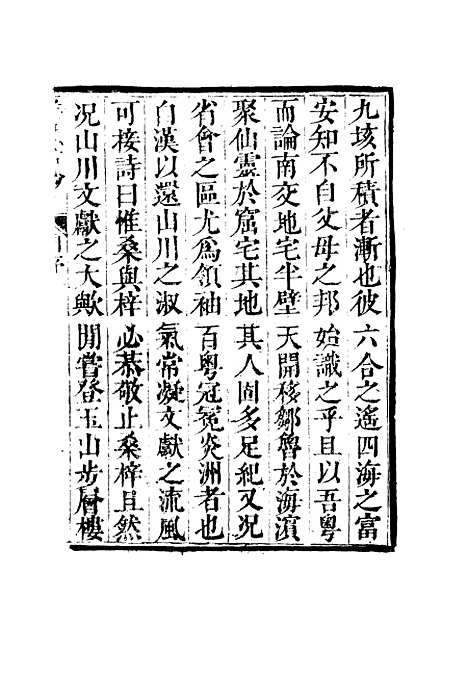 九垓所積者漸也彼六合之遙四海之富
安知不自父母之邦始識之乎且以吾粵
而論南交地宅半壁天開移鄒魯於海濵
聚仙靈於窟宅其地其人固多足紀又况
省會之區尤爲領袖百粵冠冕炎洲者也
自漢以還山川之淑氣常凝文獻之流風
可接詩曰惟桑與梓必恭敬止桑梓且然
况山川文獻之大歟閒嘗登玉山步層樓